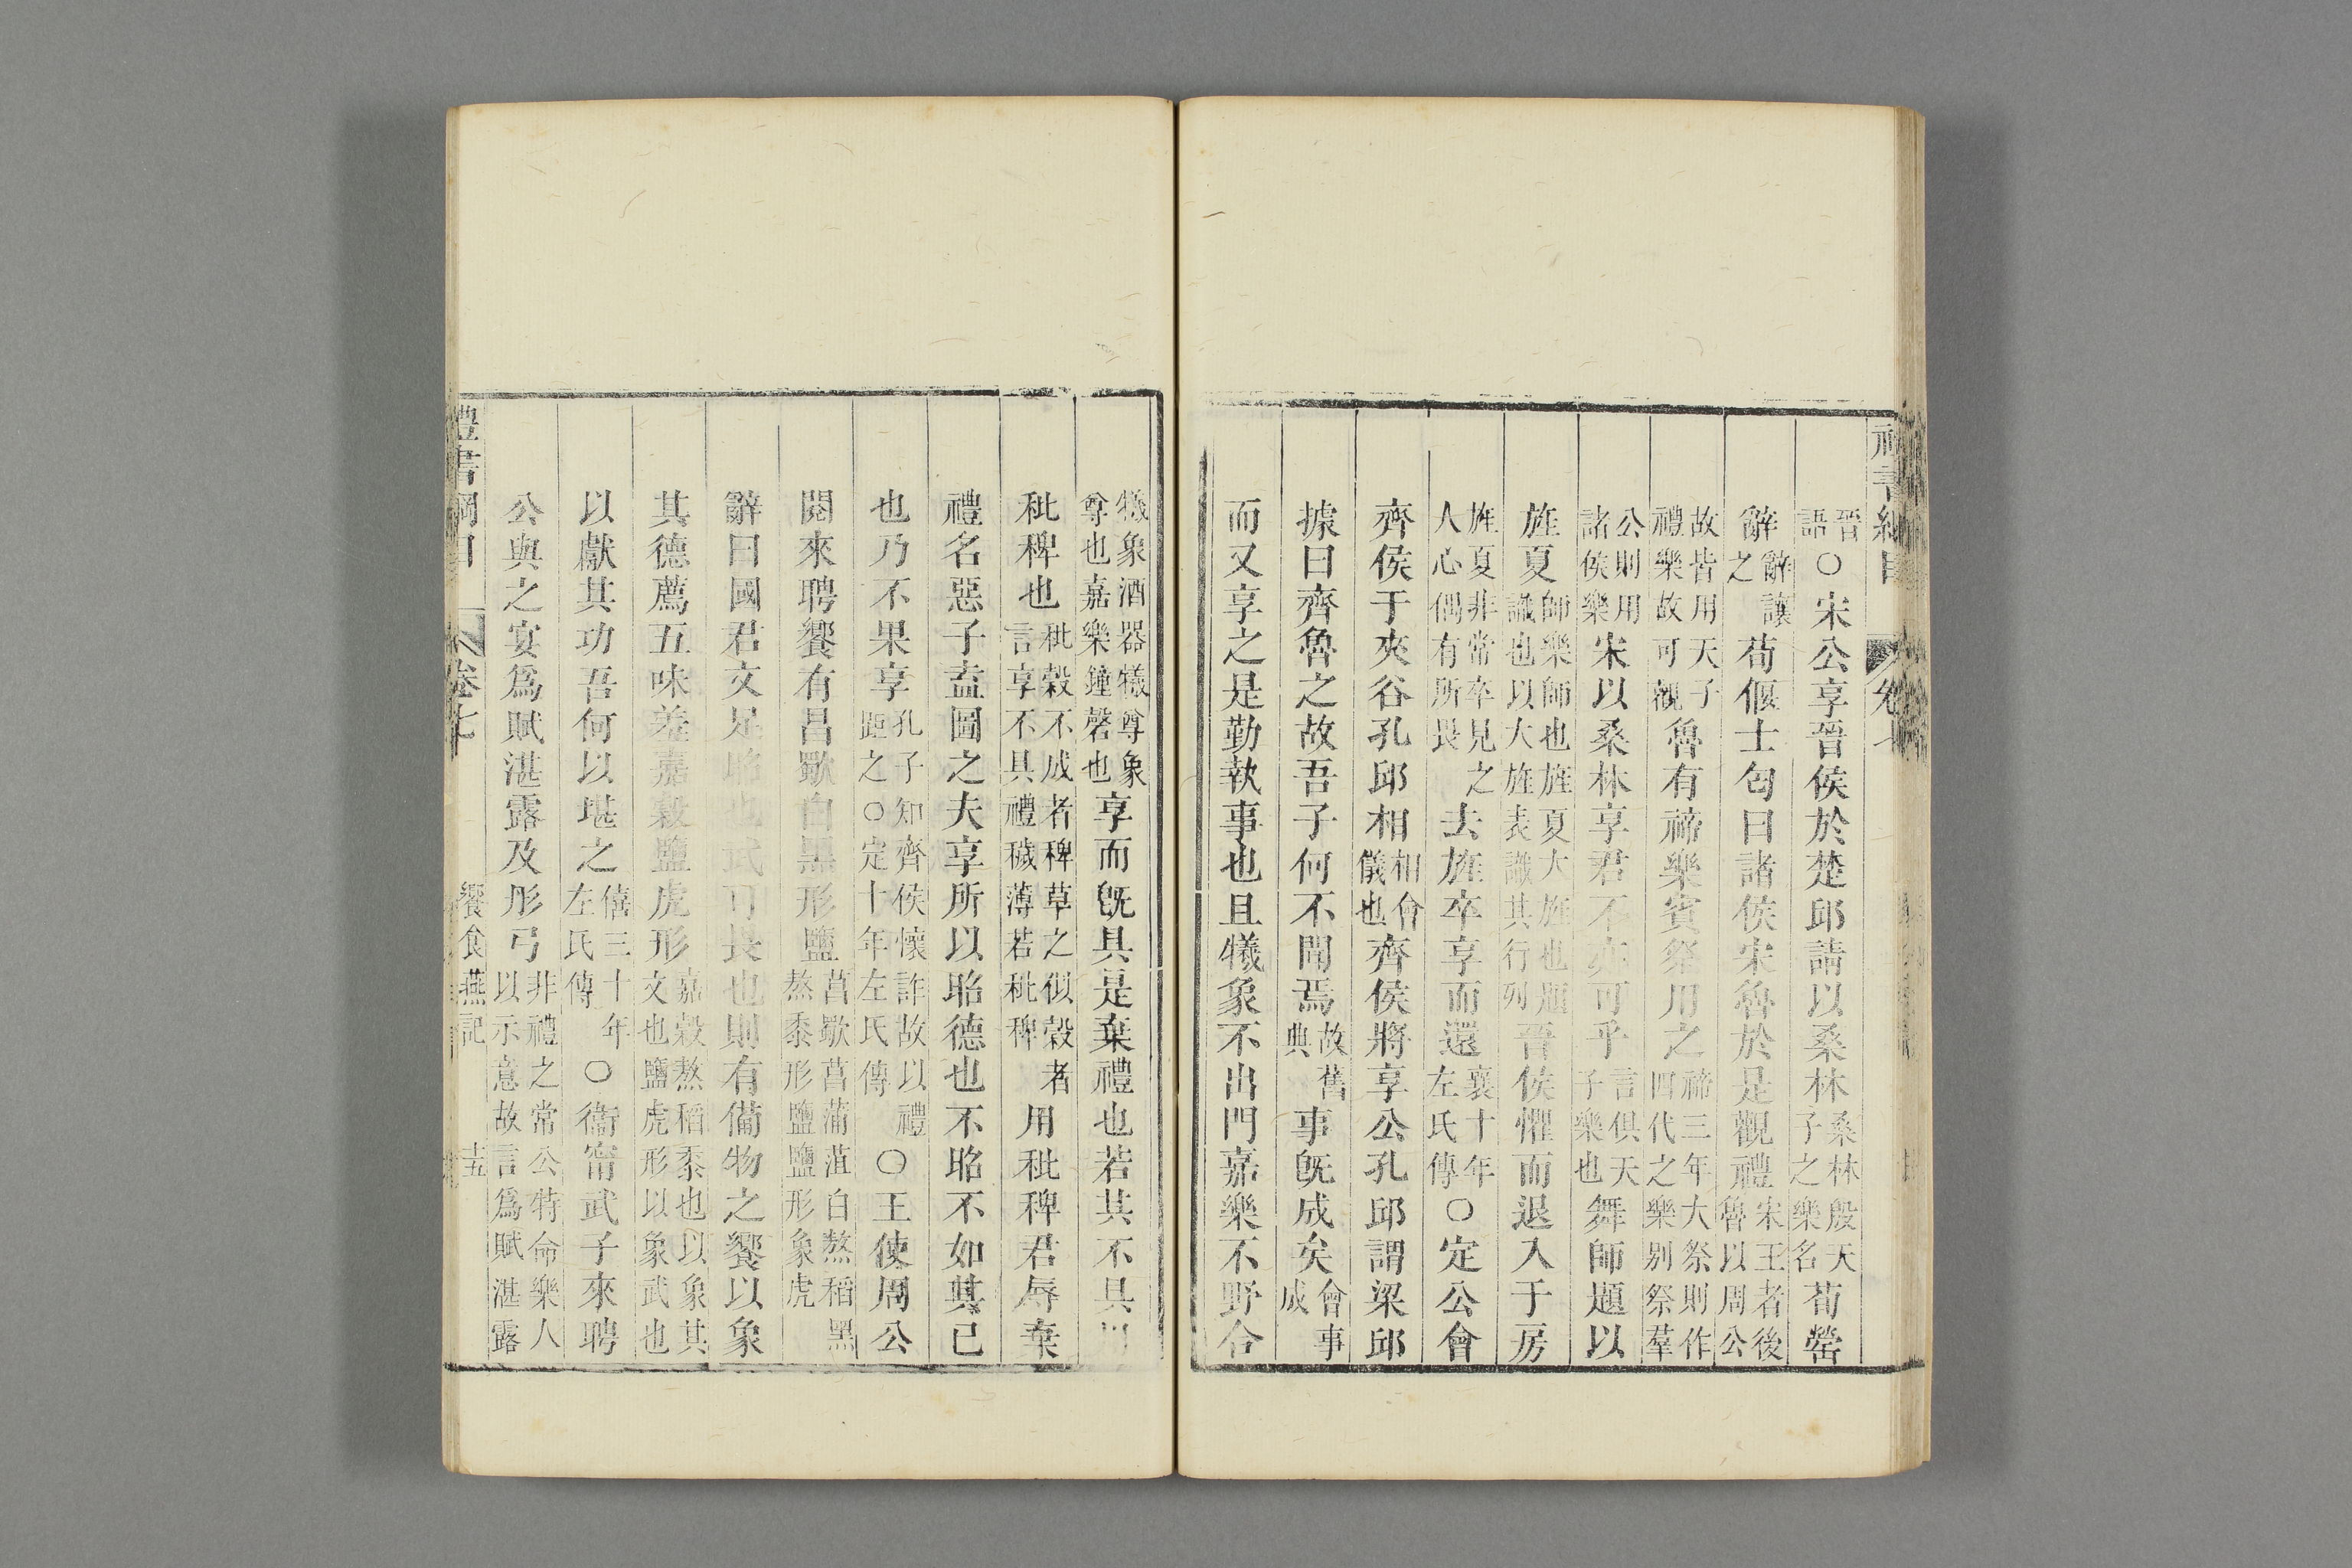 晉語○宋公享晉侯於楚邱請以桑林桑林殷天子之樂名荀罃
辭辭讓之荀偃士匄曰諸侯宋魯於是觀禮宋王者後魯以周公
故皆用天子禮樂故可觀魯有禘樂賓祭用之禘三年大祭則作四代之樂別祭羣
公則用諸侯樂宋以桑林享君不亦可乎言俱天子樂也舞師題以
旌夏師樂師也旌夏大旌也題識也以大旌表識其行列晉侯懼而退入于房
旌夏非常卒見之人心偶有所畏去旌卒享而還襄十年左氏傳○定公會
齊侯于夾谷孔邱相相會儀也齊侯將享公孔邱謂梁邱
據曰齊魯之故吾子何不聞焉故舊典事旣成矣會事成
而又享之是勤執事也且犧象不出門嘉樂不野合
犧象酒器犧尊象尊也嘉樂鐘磬也享而旣具是棄禮也若其不具
秕稗也秕穀不成者稗草之似穀者言享不具禮穢薄若秕稗用秕稗君辱棄
禮名惡子盍圖之夫享所以昭德也不昭不如其已
也乃不果享孔子知齊侯懷詐故以禮距之○定十年左氏傳○王使周公
閱來聘饗有昌歜白黑形鹽菖歜菖蒲菹白熬稻黑熬黍形鹽鹽形象虎
辭曰國君文足昭也武可畏也則有備物之饗以象
其德薦五味羞嘉穀鹽虎形嘉穀熬稻黍也以象其文也鹽虎形以象武也
以獻其功吾何以堪之僖三十年左氏傳○衞甯武子來聘
公與之宴爲賦湛露及彤弓非禮之常公特命樂人以示意故言爲賦湛露
禮書綱目 卷七 饗食燕記 十五